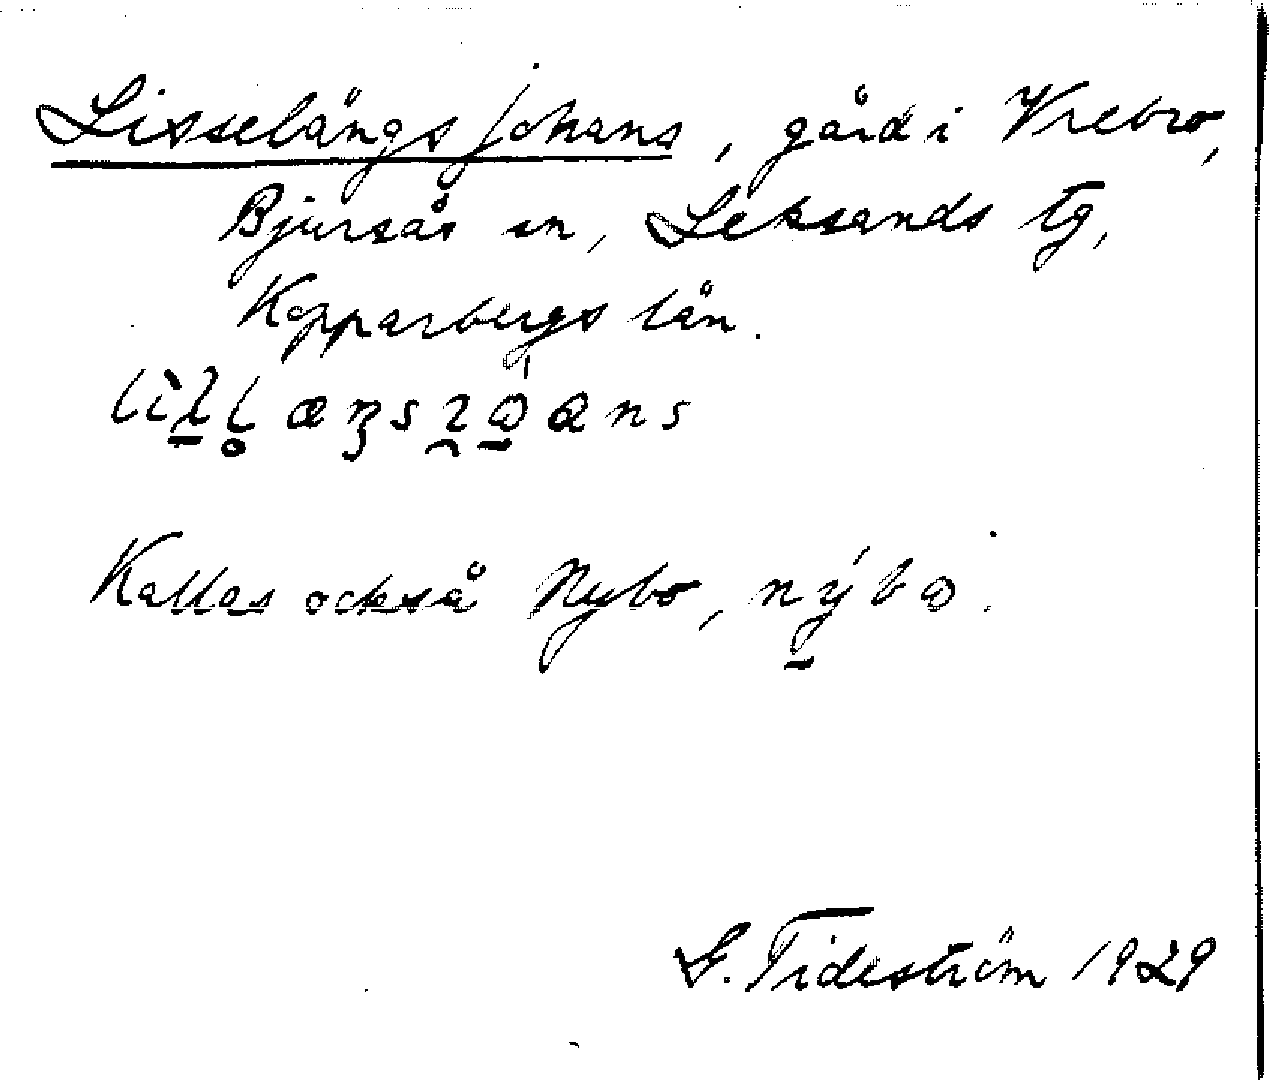 Lisselängsjohans, gård i Vrebro,
Bjursås sn, Leksands tg,
Kopparbergs län.
Kallas också Nybo, nýbɷ.
G. Tideström 1929